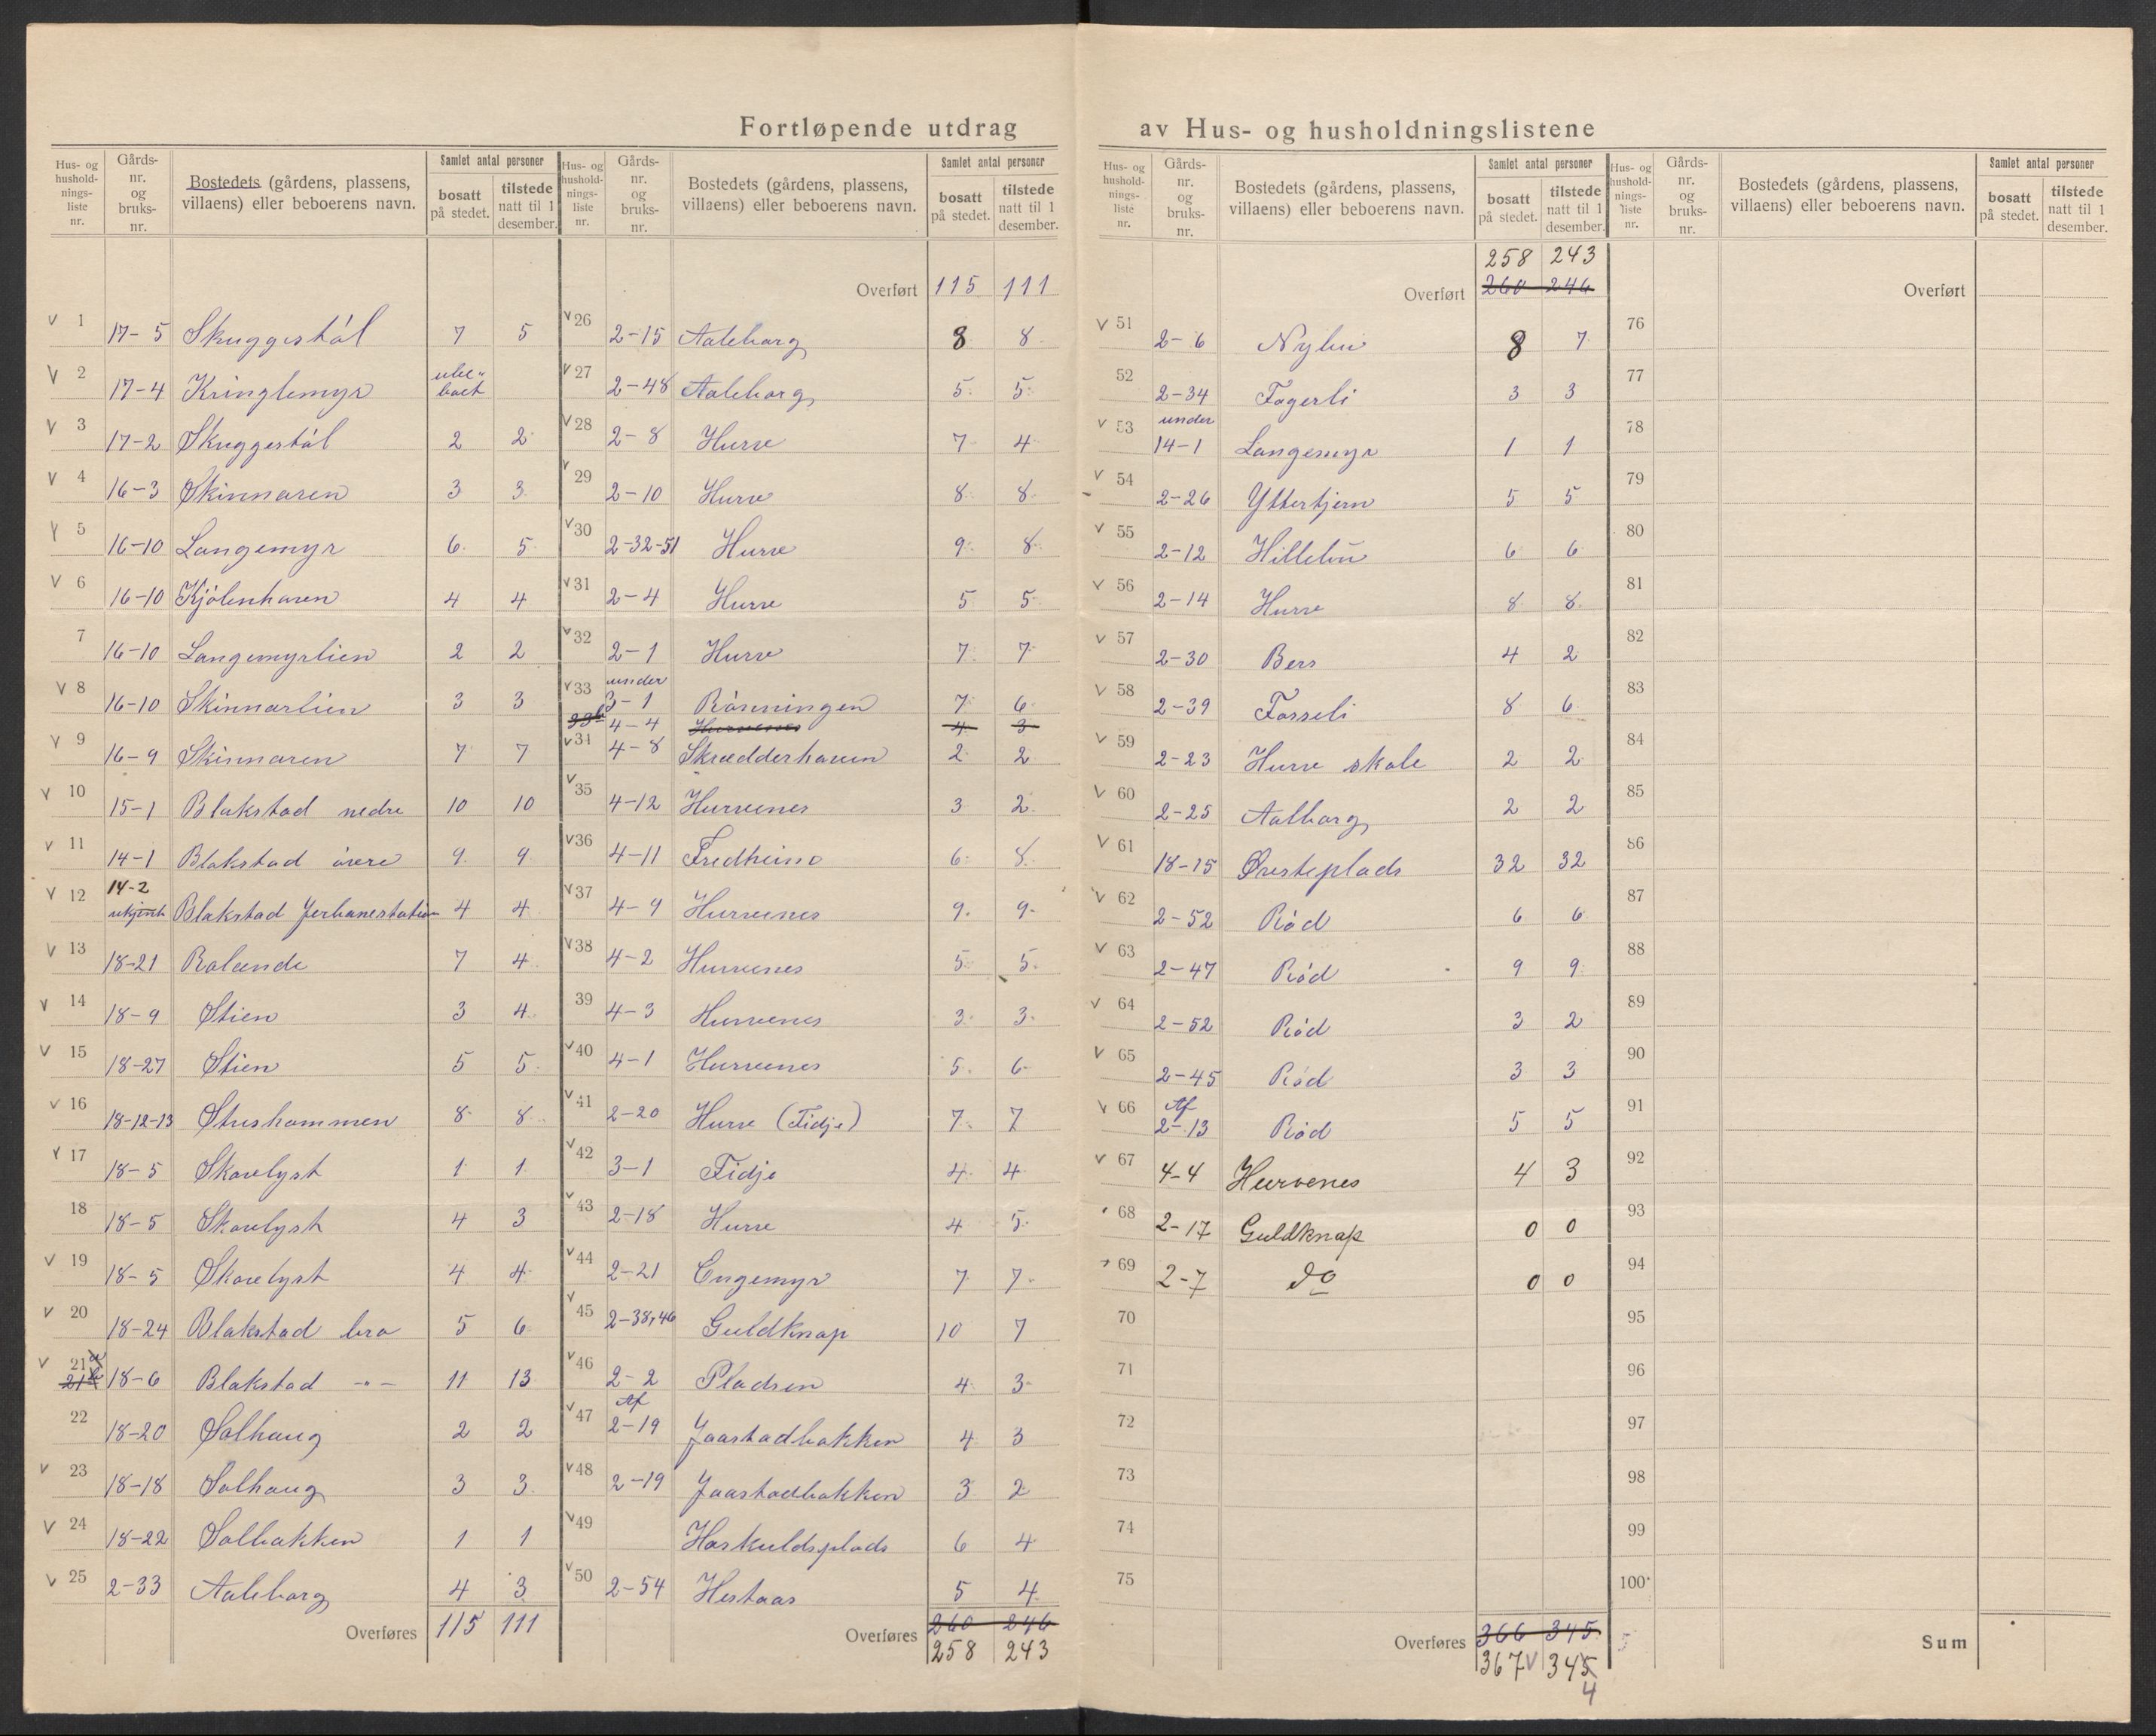 Fortløpende utdrag av Hus- og husholdningslistene
Hus- og hushold-nings-liste nr. | Gårds-nr. og bruks-nr. | Bostedets (gårdens, plassens, villaens) eller beboerens navn. | Samlet antal personer | bosatt på stedet. | tilstede natt til 1 desember.
v 1 17-5 Skuggestøl 7 5
v 2 17-4 Kringlemyr ube- boet
v 3 17-2 Skuggestøl 2 2
v 4 16-3 Skinnaren 3 3
v 5 16-10 Langemyr 6 5
v 6 16-10 Kjølenharen 4 4
7 16-10 Langemyrlien 2 2
v 8 16-10 Skinnarlien 3 3
v 9 16-9 Skinnaren 7 7
v 10 15-1 Blakstad nedre 10 10
v 11 14-1 Blakstad øvre 9 9
v 12 14-2 ukjent Blakstad Jerbanestation 4 4
v 13 18-21 Rolænde 7 4
v 14 18-9 Stien 3 4
v 15 18-27 Stien 5 5
v 16 18-12-13 Strishammen 8 8
v 17 18-5 Skovlyst 1 1
18 18-5 Skovlyst 4 3
v 19 18-5 Skovlyst 4 4
v 20 18-24 Blakstad bro 5 6
v 21 18-6 Blakstad -"- 11 13
22 18-20 Solhaug 2 2
v 23 18-18 Solhaug 3 3
v 24 18-22 Solbakken 1 1
v 25 2-33 Aaleborg 4 3
Overføres 115 111
Hus- og hushold-nings-liste nr. | Gårds-nr. og bruks-nr. | Bostedets (gårdens, plassens, villaens) eller beboerens navn. | Samlet antal personer | bosatt på stedet. | tilstede natt til 1 desember.
Overført 115 111
v 26 2-15 Aaleborg 8 8
v 27 2-48 Aaleborg 5 5
v 28 2-8 Hurve 7 4
v 29 2-10 Hurve 8 8
v 30 2-32-51 Hurve 9 8
v 31 2-4 Hurve 5 5
v 32 2-1 Hurve 7 7
v 33 under 3-1 Rønningen 7 6
33b 4-4 Hurvenes 4 3
v 34 4-8 Skrædderhaven 2 2
v 35 4-12 Hurvenes 3 2
v 36 4-11 Fredheim 6 8
v 37 4-9 Hurvenes 9 9
v 38 4-2 Hurvenes 5 5
39 4-3 Hurvenes 3 3
v 40 4-1 Hurvenes 5 6
v 41 2-20 Hurve (Tidje) 7 7
v 42 3-1 Tidje 4 4
v 43 2-18 Hurve 4 5
v 44 2-21 Engemyr 7 7
v 45 2-38,46 Guldknap 10 7
v 46 2-2 Pladsen 4 3
v 47 Af 2-19 Jaastadbakken 4 3
v 48 2-19 Jaastadbakken 3 2
v 49 Haskuldsplads 6 4
v 50 2-54 Hestaas 5 4
Overføres 260 246
258 243
Hus- og hushold-nings-liste nr. | Gårds-nr. og bruks-nr. | Bostedets (gårdens, plassens, villaens) eller beboerens navn. | Samlet antal personer | bosatt på stedet. | tilstede natt til 1 desember.
258 243
Overført 260 246
v 51 2-6 Nybu 8 7
52 2-34 Fagerli 3 3
v 53 under 14-1 Langemyr 1 1
v 54 2-26 Yttertjern 5 5
v 55 2-12 Hillebu 6 6
v 56 2-14 Hurve 8 8
v 57 2-30 Bers 4 2
v 58 2-39 Fosseli 8 6
v 59 2-23 Hurve skole 2 2
v 60 2-25 Aalborg 2 2
v 61 18-15 Øvsteplads 32 32
v 62 2-52 Rød 6 6
v 63 2-47 Rød 9 9
v 64 2-52 Rød 3 2
v 65 2-45 Rød 3 3
v 66 Af 2-13 Rød 5 5
v 67 4-4 Hurvenes 4 3
68 2-17 Guldknap 0 0
69 2-7 do 0 0
70
71
72
73
74
75
Overføres 366 345
367 v 345
4
Hus- og hushold-nings-liste nr. | Gårds-nr. og bruks-nr. | Bostedets (gårdens, plassens, villaens) eller beboerens navn. | Samlet antal personer | bosatt på stedet. | tilstede natt til 1 desember.
Overført
76
77
78
79
80
81
82
83
84
85
86
87
88
89
90
91
92
93
94
95
96
97
98
99
100
Sum